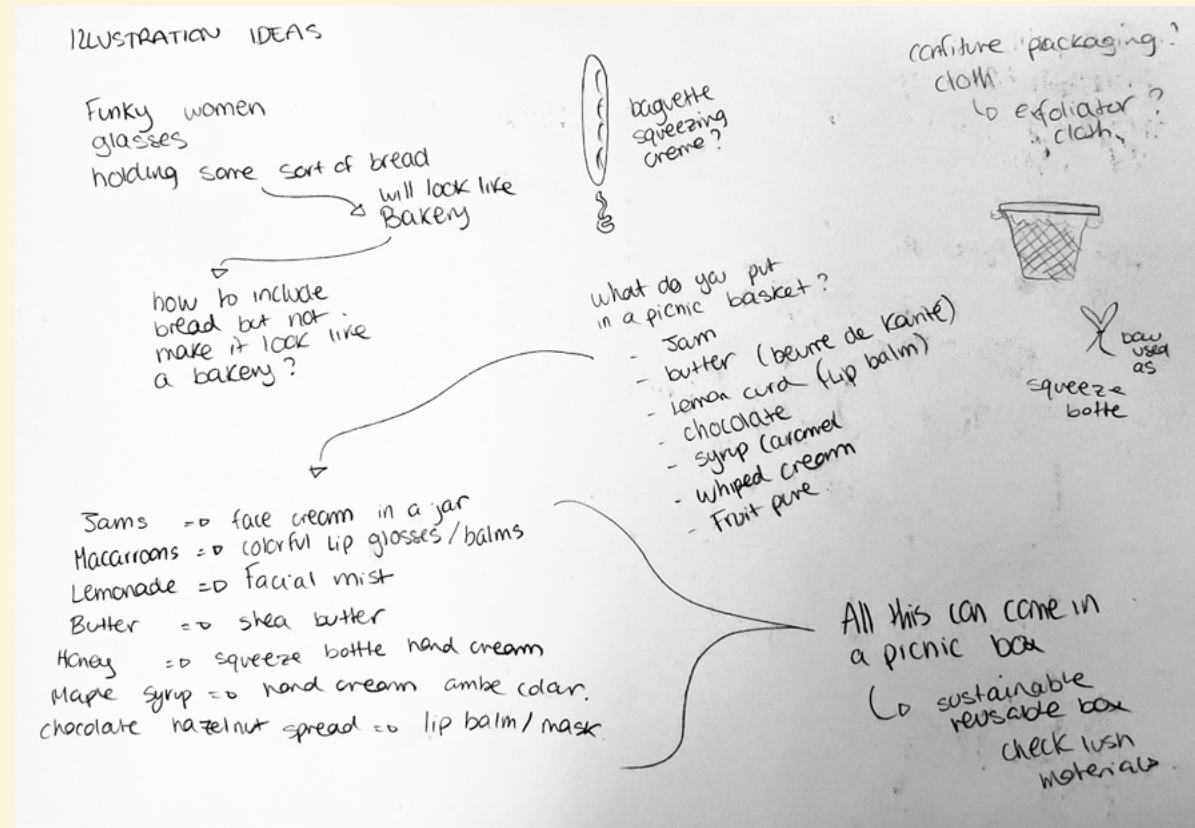 ILLUSTRATION IDEAS
Funky women
glasses
holding some sort of bread
will look like
Bakery
how to include
bread but not
make it look like
a bakery?
baguette
squeezing
creme?
confiture packaging?
cloth
↳ exfoliator?
cloth
bow
used
as
squeeze
botte
what do you put
in a picnic basket?
- Jam
- butter (beurre de Karité)
- Lemon curd (lip balm)
- chocolate
- syrup (caramel
- whiped cream
- Fruit pure
Jams => face cream in a jar
Macarroons => colorful lip glosses/balms
Lemonade => facial mist
Butter => shea butter
Honey => squeeze bottle hand cream
Maple syrup => hand cream ambe color.
chocolate hazelnut spread => lip balm/mask.
All this can come in
a picnic box
↳ sustainable
reusable box
check lush
materials